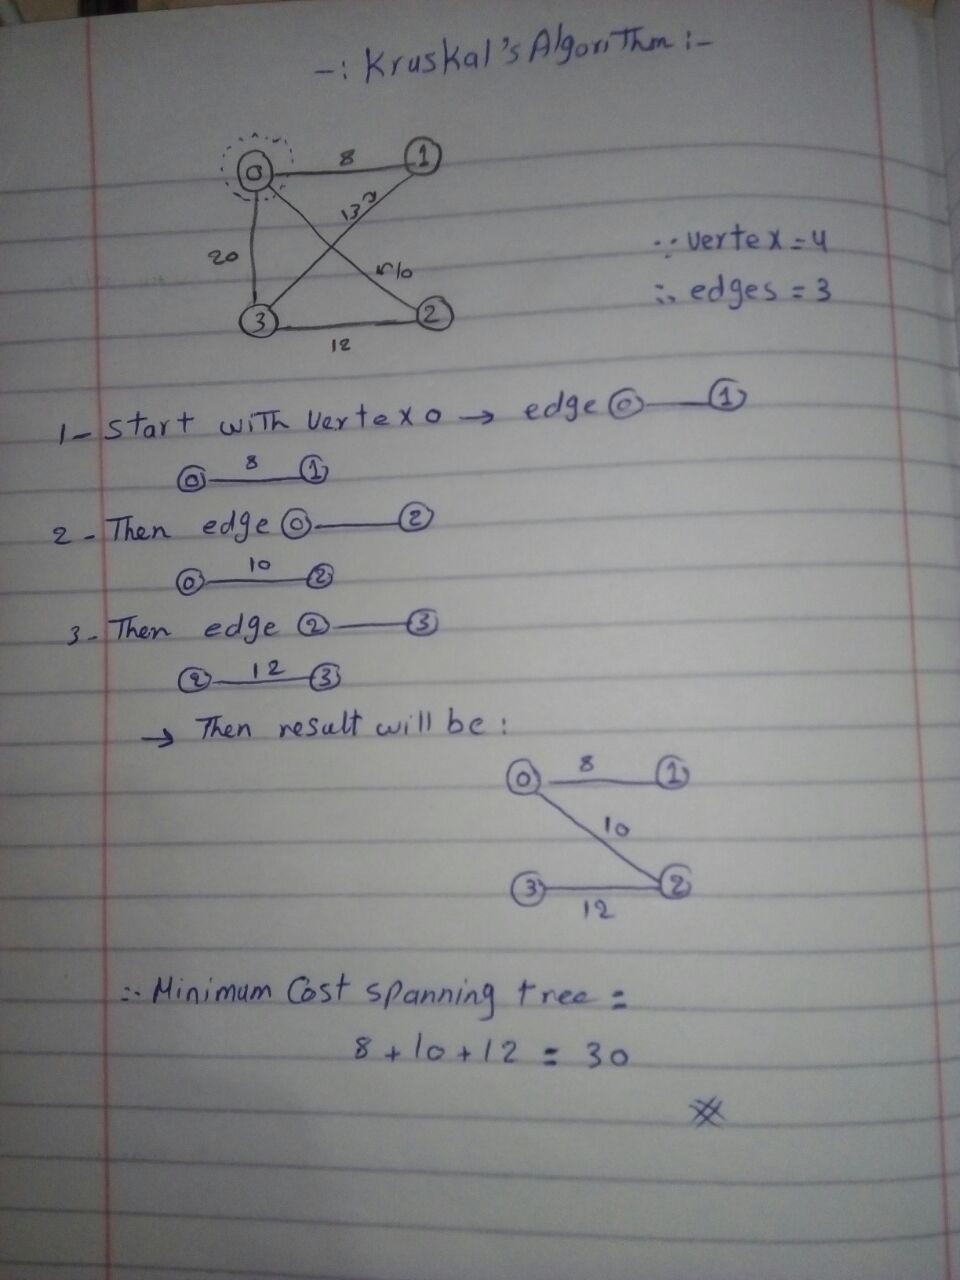 -: Kruskal's Algorithm :-
0 8 1
13
20
10
∵ vertex = 4
∴ edges = 3
3 2
12
1- start with vertex 0 → edge 0 — 1
0 8 1
2 - Then edge 0 — 2
0 10 2
3 - Then edge 2 — 3
2 12 3
→ Then result will be :
0 8 1
10
3 2
12
∴ Minimum Cost spanning tree =
8 + 10 + 12 = 30